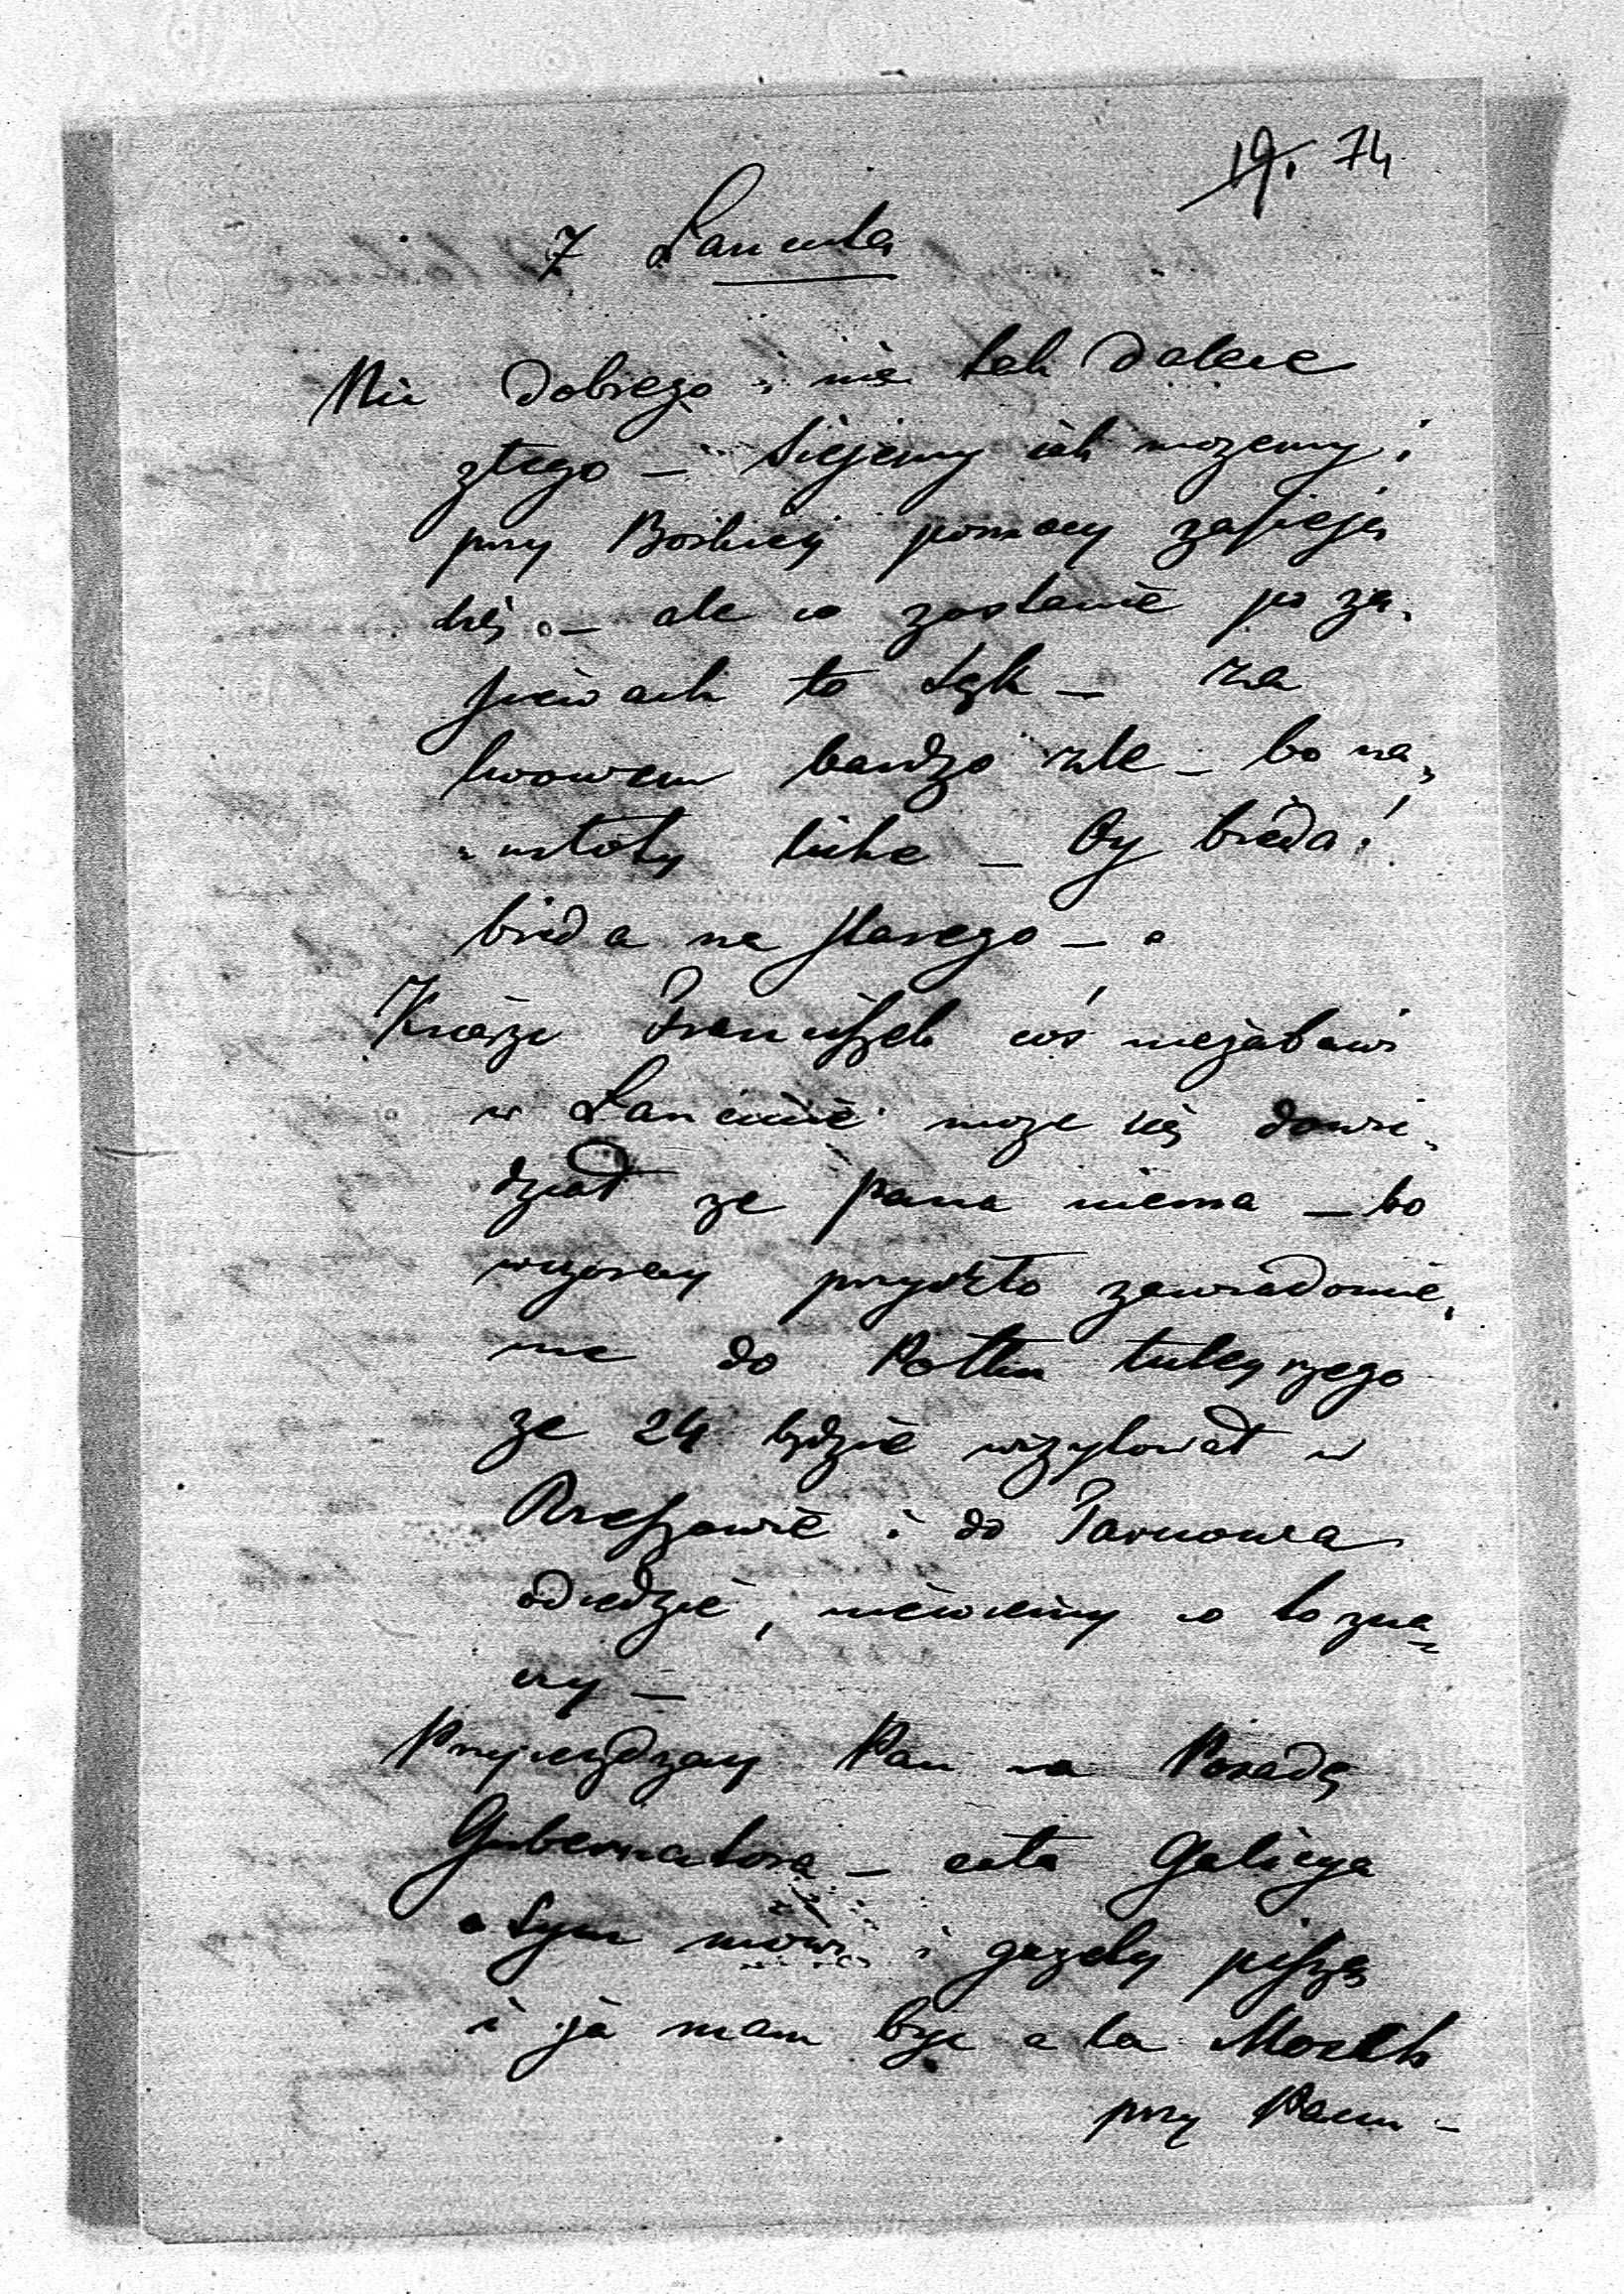 19. 74
Z Łańcuta
Nic dobrego i nie tak dalece
złego – Siejemy jak możemy i
przy Boskiej pomocy zasieją
się. – ale co zostanie po za„
siewach to sęk – Za
Lwowem bardzo źle – bo na„
wstoły liche – Oj bieda!
bieda na starego –
Książe Franciszek coś niezabawi
w Łańcucie może się dowie„
dział ze pana niema – bo
wczoray przyszło zawiadomie„
nie do Pułku tutejszego
ze 24 będzie wizytował w
Rzeszowie i do Tarnowa
odiedzie, niewiemy co to zna„
czy –
Przyjeżdzay Pan na Posadę
Gubernatora – cała Galicya
o tym mówi i gazety piszą
i ja mam być a la
przy Panu –